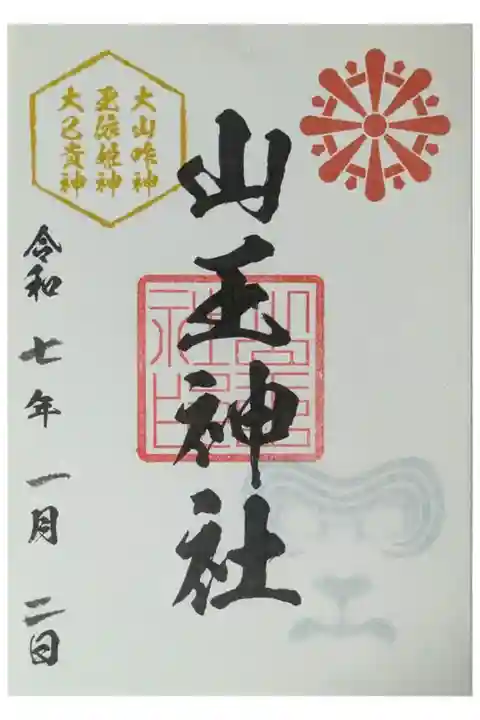 山王神社
大山咋神
玉依姫神
大己貴神
令和七年一月二日